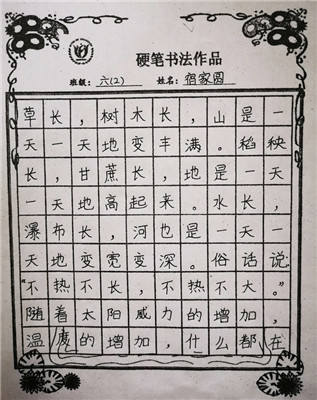 硬笔书法作品
班级：六(2) 姓名：宿家圆
草长，树木长，山是一
天一天地变丰满。稻秧
长，甘蔗长，地是一天
一天地高起来。水长，
瀑布长，河也是一天一
天地变宽变深。俗话说：
“不热不长，不热不大。”
随着太阳威力的增加，
温度的增加，什么都在